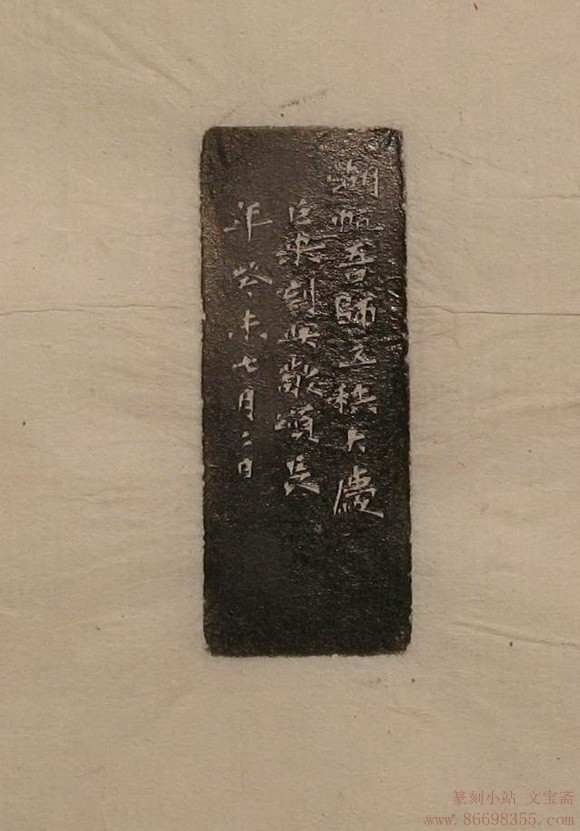 湖帆吾師五秩大慶
巨来刻敬頌長
年癸未七月二日
篆刻小站 文宝斋
www.86698355.com